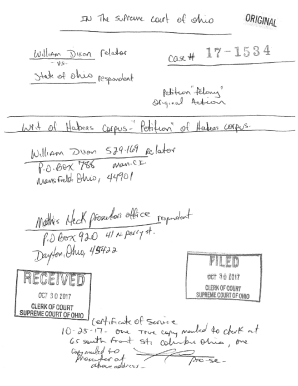 IN The supreme court of ohio
ORIGINAL
William Dixon relator
-vs-
case # 17-1534
State of Ohio respondent
Petition "felony"
Original Action
Writ of Habeas Corpus - "Petition" of Habeas corpus.
William Dixon 529-169 relator
P.O. Box 788
Mansfield, Ohio, 44901
prosecutors office respondent
P.O Box 920 41 N. Perry st.
Dayton, Ohio, 45422
RECEIVED
OCT 30 2017
CLERK OF COURT
SUPREME COURT OF OHIO
FILED
OCT 30 2017
CLERK OF COURT
SUPREME COURT OF OHIO
Certificate of Service
10-25-17- one True copy mailed to clerk at
65 south Front St. Columbus Ohio, one
copy mailed to
prosecutor at
above address-
Pro-se-